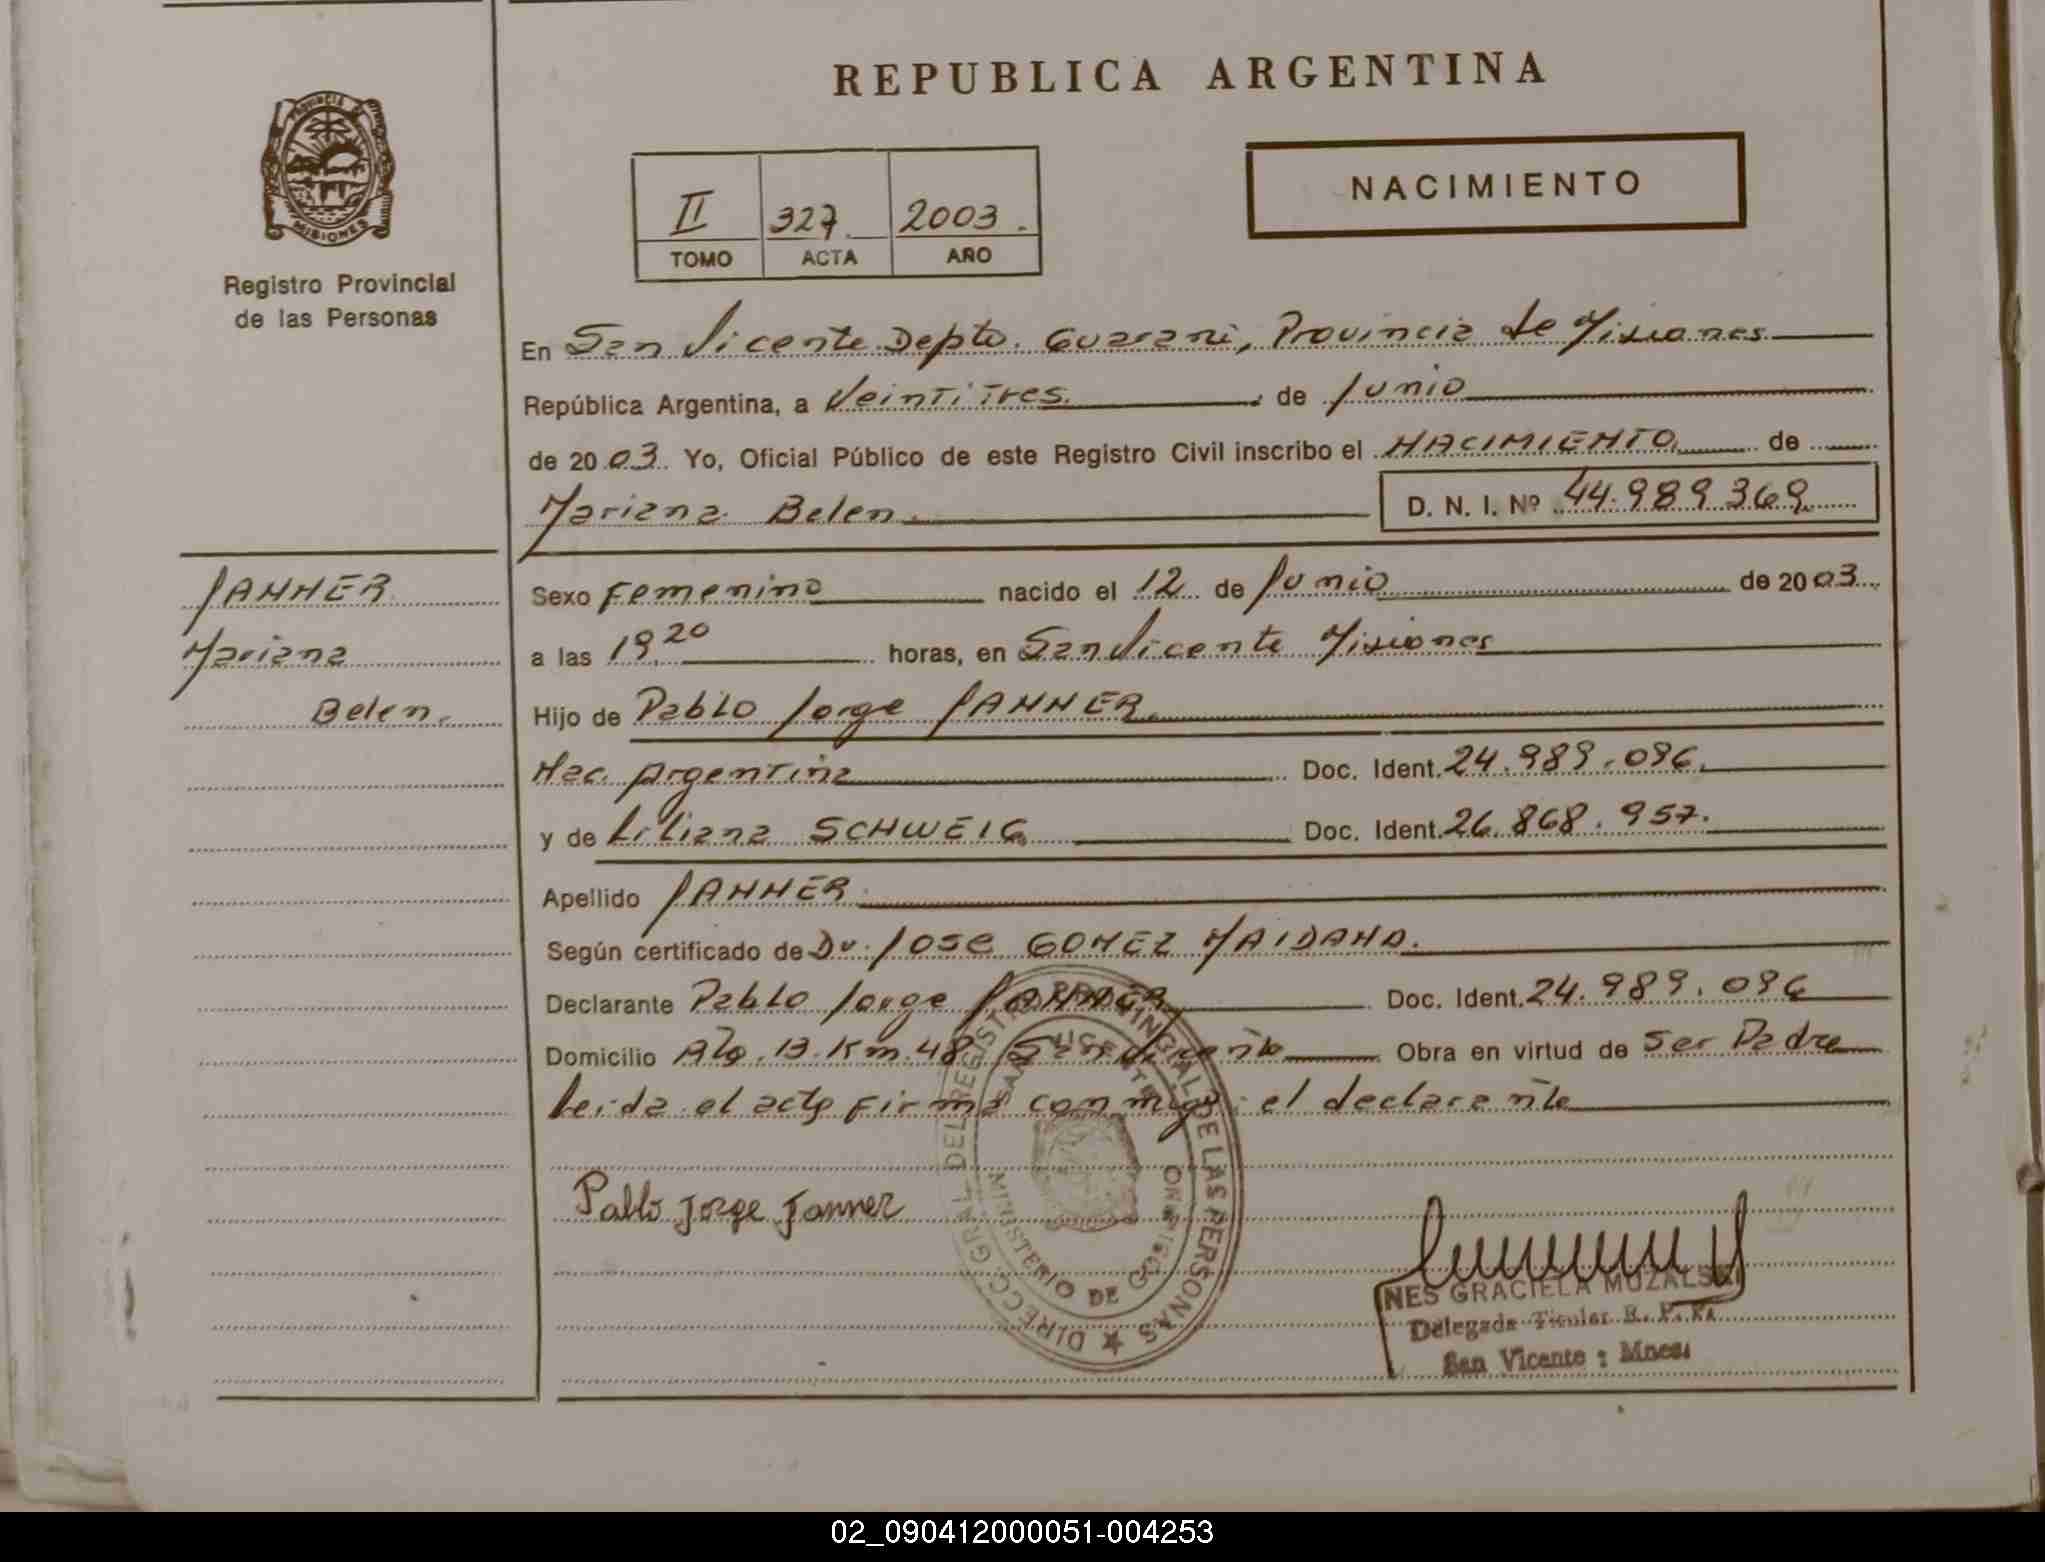 REPUBLICA ARGENTINA
PROVINCIA DE
MISIONES
Registro Provincial
de las Personas
II 327 2003.
TOMO ACTA AÑO
NACIMIENTO
En San Vicente Depto. Guarani, Provincia de Misiones
República Argentina, a Veintitres de Junio
de 2003. Yo, Oficial Público de este Registro Civil inscribo el NACIMIENTO de
Mariana Belen D. N. I. Nº 44.989.369
JANNER
Mariana
Belen.
Sexo Femenino nacido el 12 de Junio de 2003
a las 19,20 horas, en San Vicente Misiones
Hijo de Pablo Jorge JANNER
Nac. Argentina Doc. Ident. 24.989.096.
y de Liliana SCHWEIG Doc. Ident. 26.868.957.
Apellido JANNER
Según certificado de Dr. JOSE GOMEZ MAIDANA.
Declarante Pablo Jorge JANNER Doc. Ident. 24.989.096
Domicilio Alg. 13. Km. 48 San Vicente Obra en virtud de Ser Padre
Leida el acta firma conmigo el declarante
Pablo Jorge Janner
DIRECC. GRAL. DEL REGISTRO PROVINCIAL DE LAS PERSONAS
SAN VICENTE
MINISTERIO DE GOB MISIONES
NES GRACIELA MUZALSKI
Delegada Titular R. P. P.
San Vicente : Mnes.
02_090412000051-004253